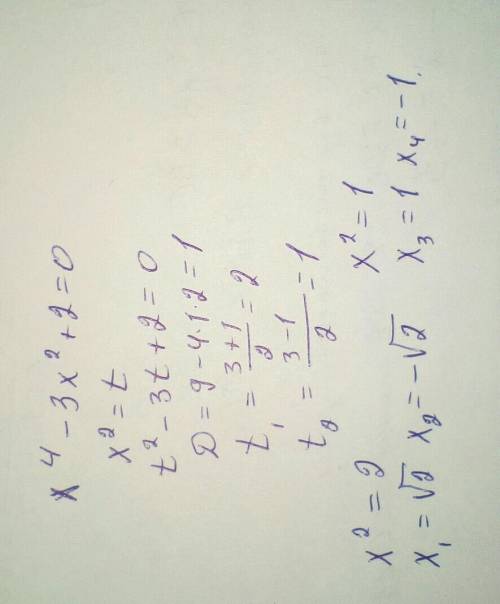 x⁴ - 3x² + 2 = 0
x² = t
t² - 3t + 2 = 0
D = 9 - 4·1·2 = 1
t₁ = (3+1)/2 = 2
t₂ = (3-1)/2 = 1
x² = 2 x² = 1
x₁ = √2 x₂ = -√2 x₃ = 1 x₄ = -1.